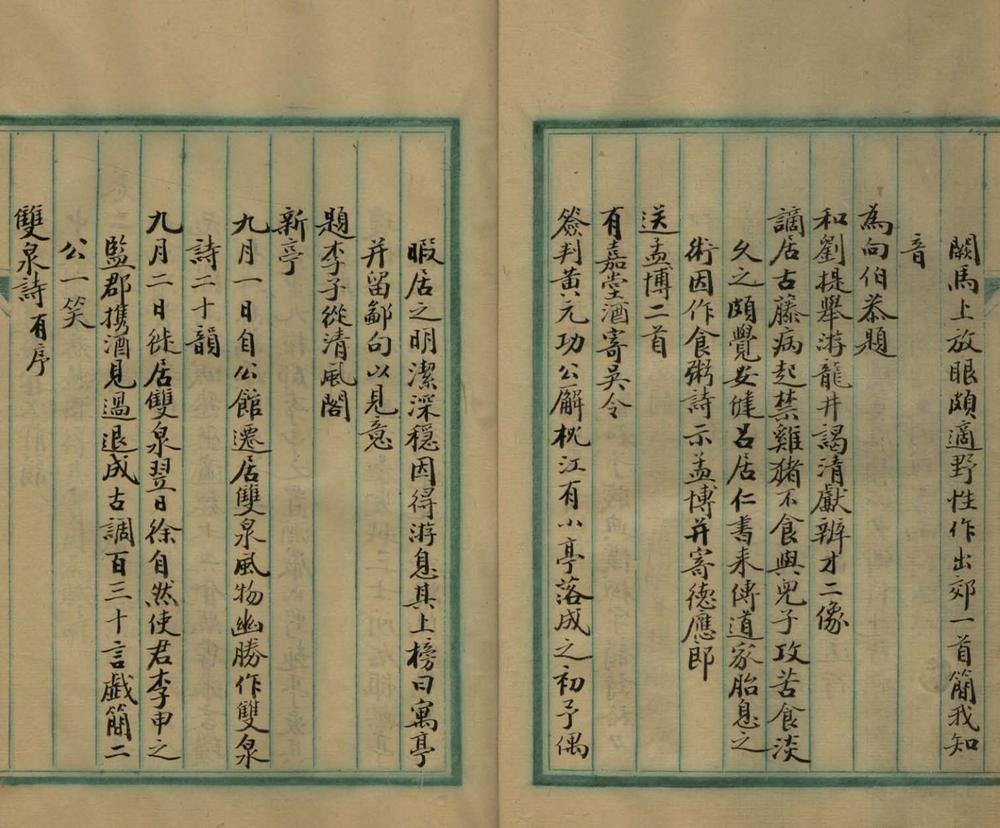 闕馬上放眼頗適野性作出郊一首簡我知
音
為向伯恭題
和劉提舉游龍井謁清獻辨才二像
謫居古藤病起禁雞猪不食與兒子攻苦食淡
久之頗覺安健呂居仁書来傳道家胎息之
術因作食粥詩示孟博并寄德應郎
送孟博二首
有嘉堂酒寄吳令
簽判黃元功公廨枕江有小亭落成之初予偶
暇居之明潔深穩因得游息其上榜曰寓亭
并留鄙句以見意
題李子從清風閣
新亭
九月一日自公館遷居雙泉風物幽勝作雙泉
詩二十韻
九月二日徙居雙泉翌日徐自然使君李申之
監郡携酒見過退成古調百三十言戯簡二
公一笑
雙泉詩有序